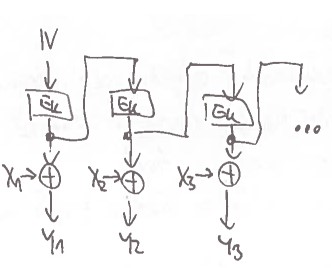 IV
Ek Ek Ek
...
X1 X2 X3
Y1 Y2 Y3